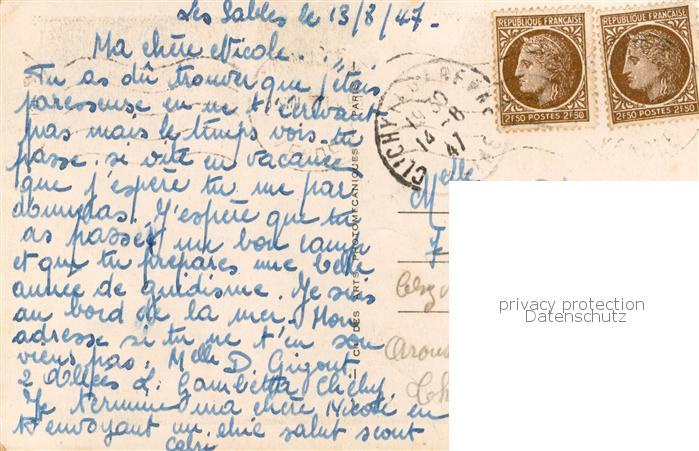 Les Sables le 13/8/47-
Ma chère Nicole...
Tu as dû trouver que j'étais
paresseuse en ne t'écrivant
pas mais le temps vois-tu
passe si vite en vacance
que j'espère tu me par
donneras. J'espère que tu
as passé un bon camp
et que tu prépares une belle
année de guidisme. Je suis
au bord de la mer. Mon
adresse si tu ne t'en sou
viens pas. Melle D. Gigout
2 L. Gambetta Clichy
Je termine ma chère Nicole en
t'envoyant un chic salut scout
REPUBLIQUE FRANÇAISE
2F50 POSTES 2F50
REPUBLIQUE FRANÇAISE
2F50 POSTES 2F50
CLICHY
14-8
47
CIE DES ARTS PHOTOMECANIQUES
Melle
7
privacy protection
Datenschutz